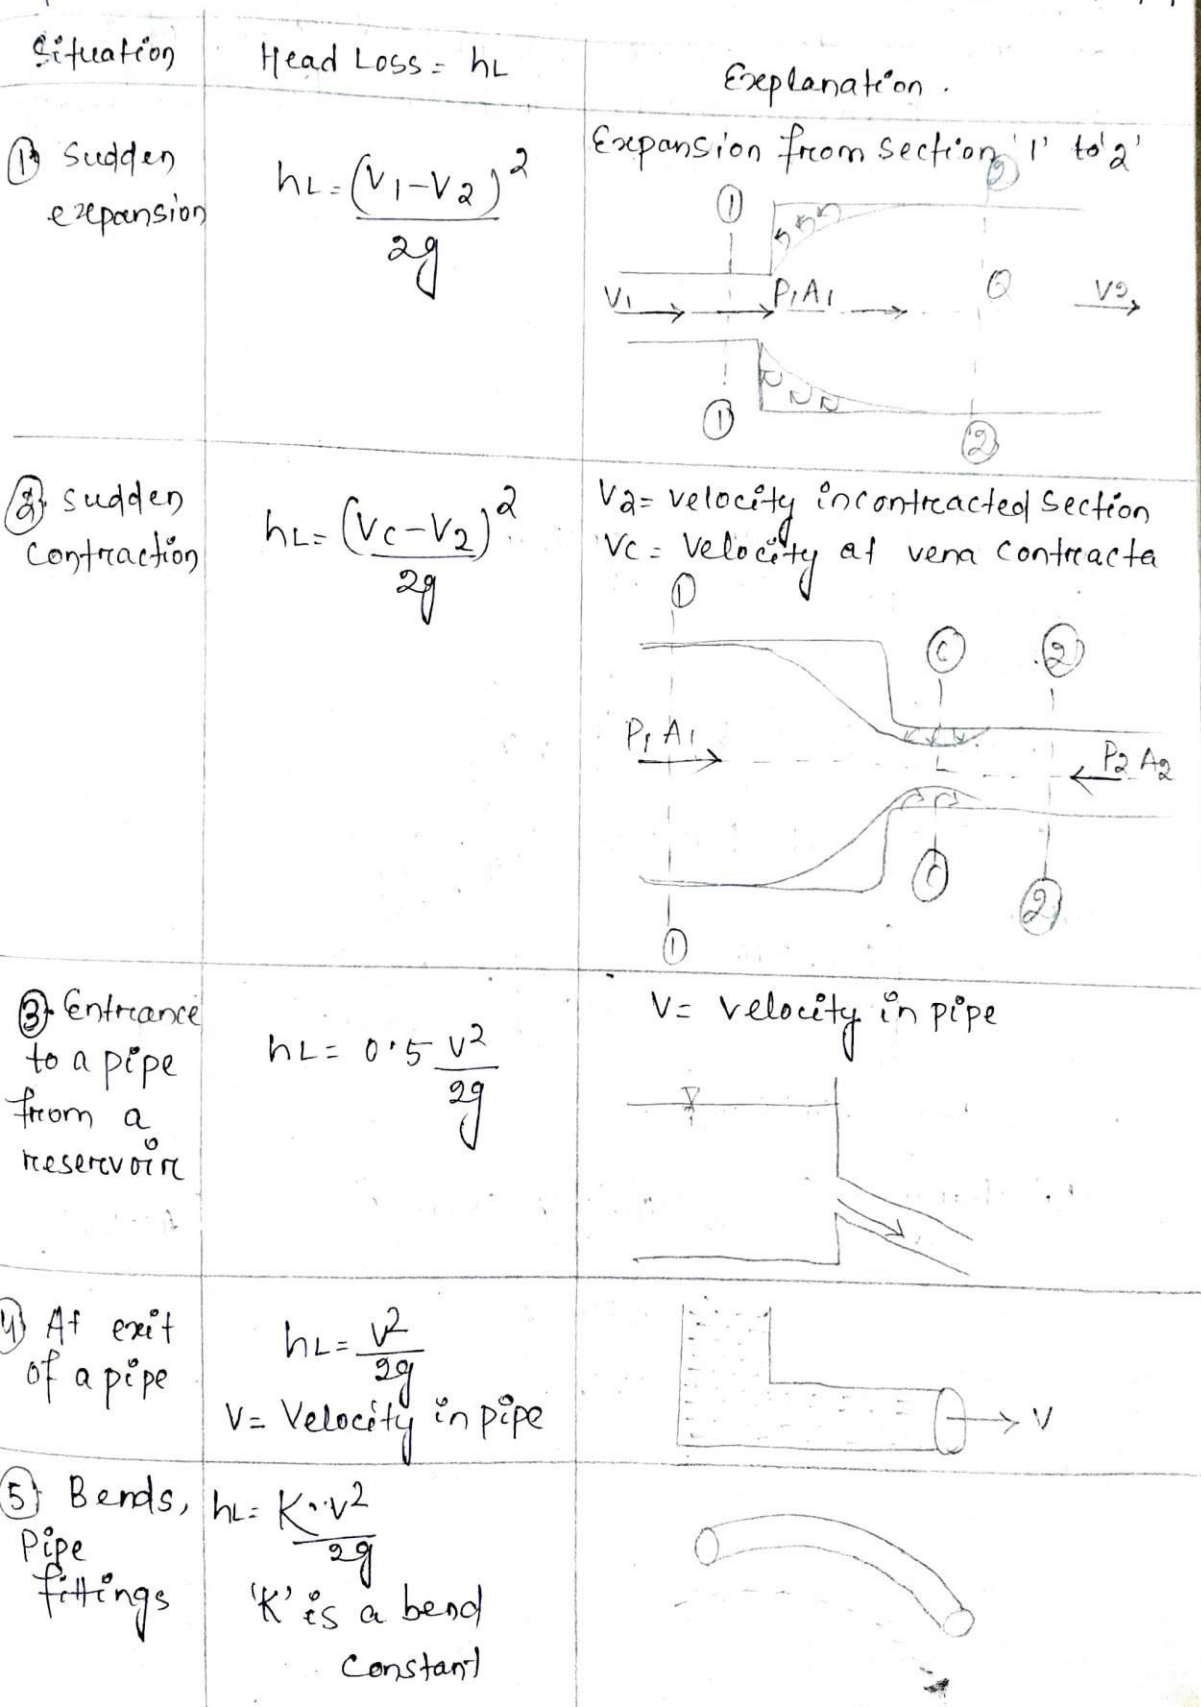 Situation
Head Loss = hL
Explanation.
① Sudden
expansion
hL = (V1-V2)²
2g
Expansion from section '1' to '2'
②
①
V1
P1A1
②
V2
①
②
② Sudden
Contraction
hL = (Vc-V2)²
2g
V2 = velocity in contracted section
Vc = Velocity at vena contracta
①
C
②
P1 A1
P2 A2
C
②
①
③ Entrance
to a pipe
from a
reservoir
hL = 0.5 V²
2g
V = velocity in pipe
④ At exit
of a pipe
hL = V²
2g
V = Velocity in pipe
V
⑤ Bends,
Pipe
fittings
hL = K.V²
2g
'K' is a bend
Constant